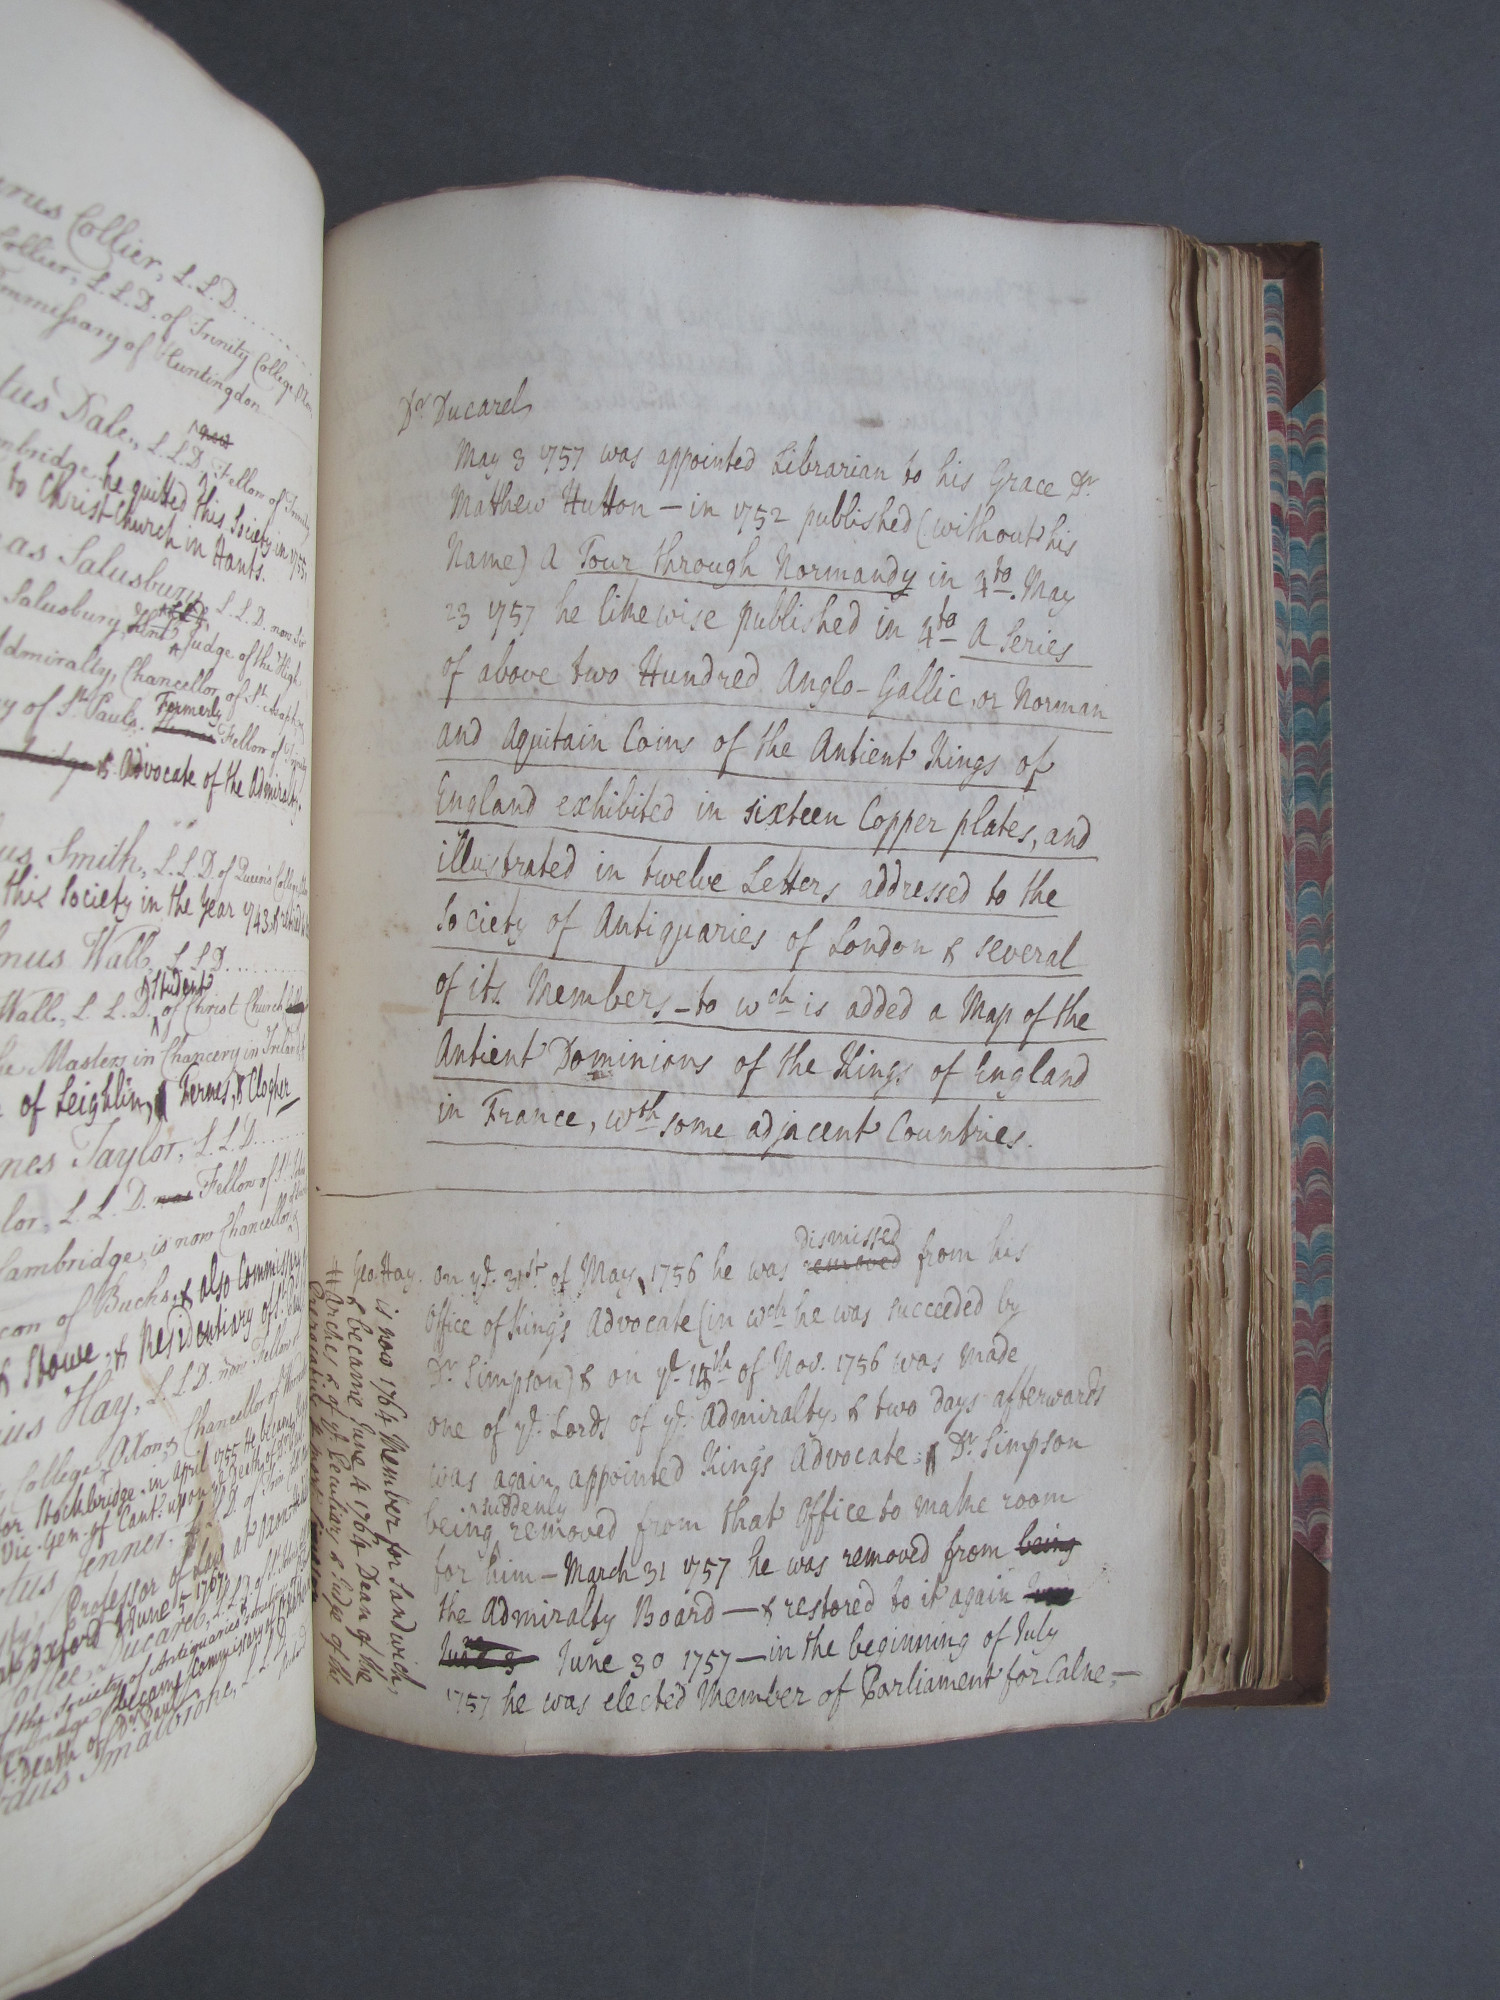 Collier, L.L.D.
Collier, L.L.D. of Trinity College
Commissary of Huntingdon
Dale, L.L.D. Fellow of Trinity
he quitted this Society in 1755,
to Christ Church in Hants.
Salusbury, L.L.D. now Sir
Salusbury, Judge of the High
Admiralty, Chancellor of St. Asaph,
of St. Pauls. Formerly Fellow of Trinity
& Advocate of the Admiralty.
Smith, L.L.D. of Queen's College
this Society in the Year 1743, &
Wall, L.L.D.
Wall, L.L.D. Student of Christ Church
Masters in Chancery in Ireland
of Leighlin, Fernes, & Clogher
Taylor, L.L.D.
L.L.D. was Fellow of St.
Cambridge, is now Chancellor
of Bucks, & also Commissary
Stowe. & Residentiary of St.
Hay, L.L.D. now Fellow
College Oxon, Chancellor of
for Stockbridge. in April 1755 He became
Vic. Gen. of Cant. upon ye. Death of Dr.
Jenner.
Professor of Law at
at Oxford June 15 1767
Ducarel, L.L.D. of St.
of the Society of Antiquaries
became Commissary of
Death of Dr. Paul
Smalbroke, L.L.D.
Dr. Ducarel
May 3 1757 was appointed Librarian to his Grace Dr.
Matthew Hutton — in 1752 published (without his
Name) A Tour through Normandy in 4to. May
23 1757 he likewise published in 4to A Series
of above two Hundred Anglo-Gallic, or Norman
and Aquitain Coins of the Antient Kings of
England exhibited in sixteen Copper plates, and
illustrated in twelve Letters addressed to the
Society of Antiquaries of London & several
of its Members — to wch is added a Map of the
Antient Dominions of the Kings of England
in France, wth some adjacent Countries.
Geo. Hay. on ye. 31st of May, 1756 he was removed dismissed from his
Office of King's Advocate (in wch he was succeeded by
Dr. Simpson) & on ye. 15th of Nov. 1756 was made
one of ye. Lords of ye. Admiralty, & two days afterwards
was again appointed King's Advocate: Dr. Simpson
being suddenly removed from that Office to make room
for him — March 31 1757 he was removed from being
the Admiralty Board — & restored to it again
June 3 June 30 1757 — in the beginning of July
1757 he was elected Member of Parliament for Calne, —
is now 1764 Member for Sandwich,
& became June 4 1764 Dean of the
Arches & of ye Peculiars, & Judge of the